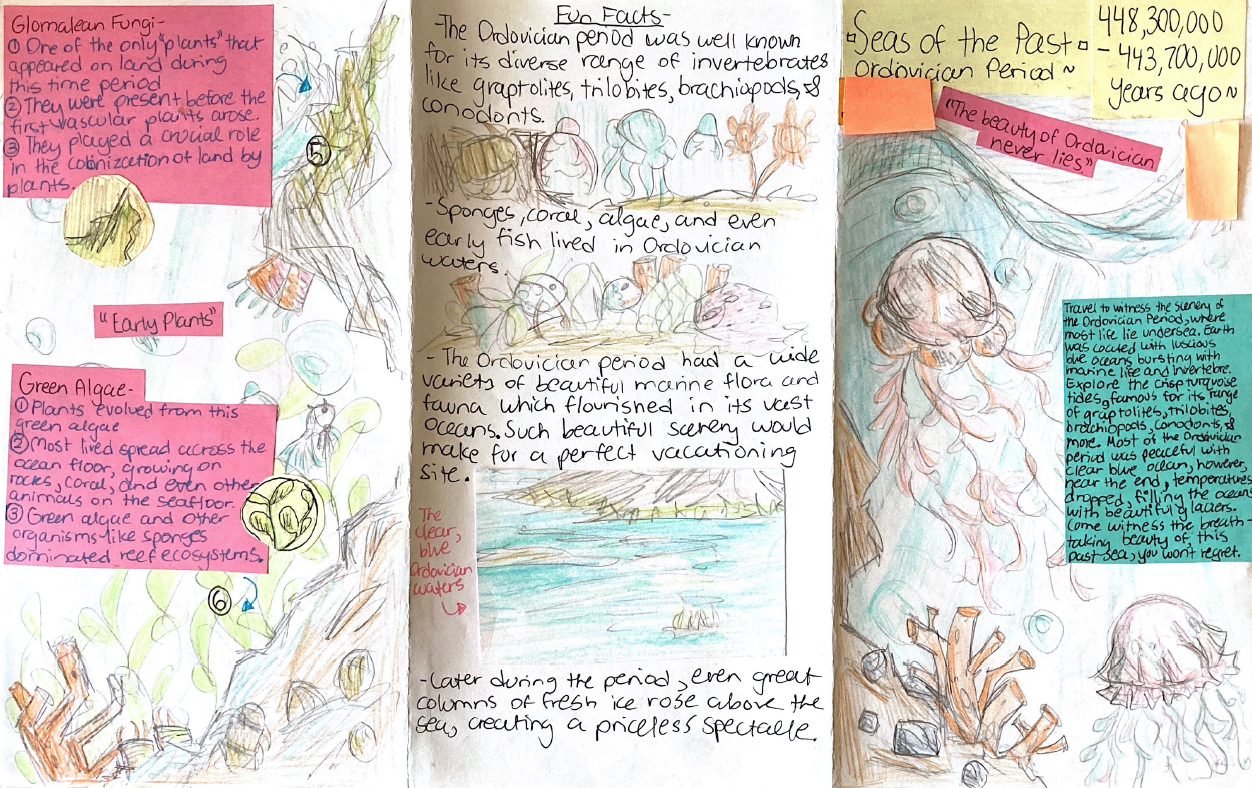 Glomalean Fungi-
① One of the only "plants" that
appeared on land during
this time period
② They were present before the
first vascular plants arose.
③ They played a crucial role
in the colonization of land by
plants.
⑤
"Early Plants"
Green Algae-
① Plants evolved from this
green algae
② Most lived spread across the
ocean floor, growing on
rocks, coral, and even other
animals on the seafloor.
③ Green algae and other
organisms like sponges
dominated reef ecosystems.
⑥
Fun Facts-
-The Ordovician period was well known
for its diverse range of invertebrates
like graptolites, trilobites, brachiopods, &
conodonts.
-Sponges, coral, algae, and even
early fish lived in Ordovician
waters.
-The Ordovician period had a wide
variety of beautiful marine flora and
fauna which flourished in its vast
oceans. Such beautiful scenery would
make for a perfect vacationing
site.
The
clear,
blue
Ordovician
waters
-Later during the period, even great
columns of fresh ice rose above the
sea, creating a priceless spectacle.
Seas of the Past
Ordovician Period~
448,300,000
- 443,700,000
years ago~
"The beauty of Ordovician
never lies"
Travel to witness the scenery of
the Ordovician Period, where
most life lie undersea. Earth
was coated with luscious
blue oceans bursting with
marine life and invertebre.
Explore the crisp turquoise
tides, famous for its range
of graptolites, trilobites,
brachiopods, conodonts, &
more. Most of the Ordovician
period was peaceful with
clear blue ocean, however,
near the end, temperatures
dropped, filling the ocean
with beautiful glaciers.
Come witness the breath-
taking beauty of this
past sea, you won't regret.